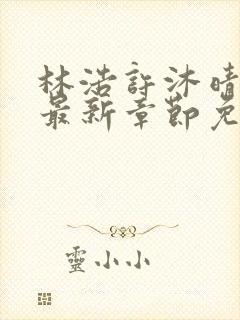 林浩許沐晴
最新章節免
靈小小